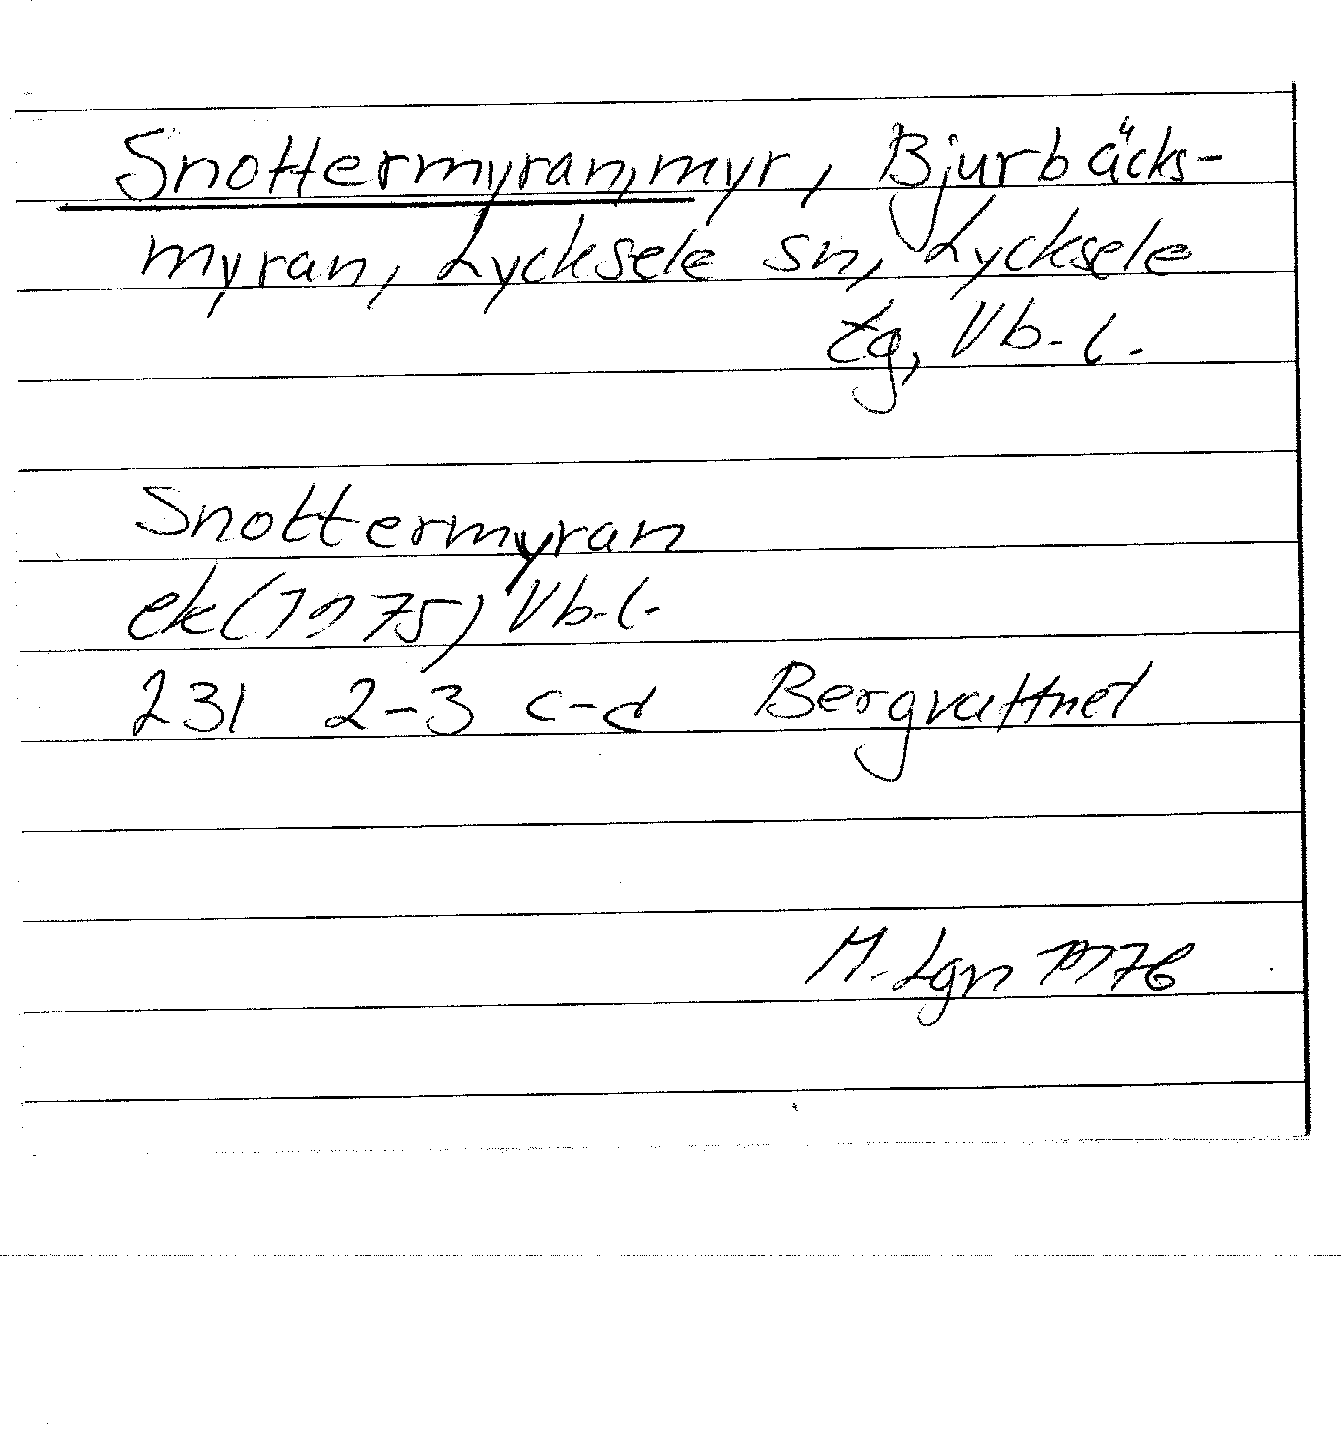 Snottermyran, myr, Bjurbäcks-
myran, Lycksele sn, Lycksele
tg, Vb. l.
Snottermyran
ek (1975) Vb. l.
231 2-3 c-d Bergvattnet
M. Lgn 1976